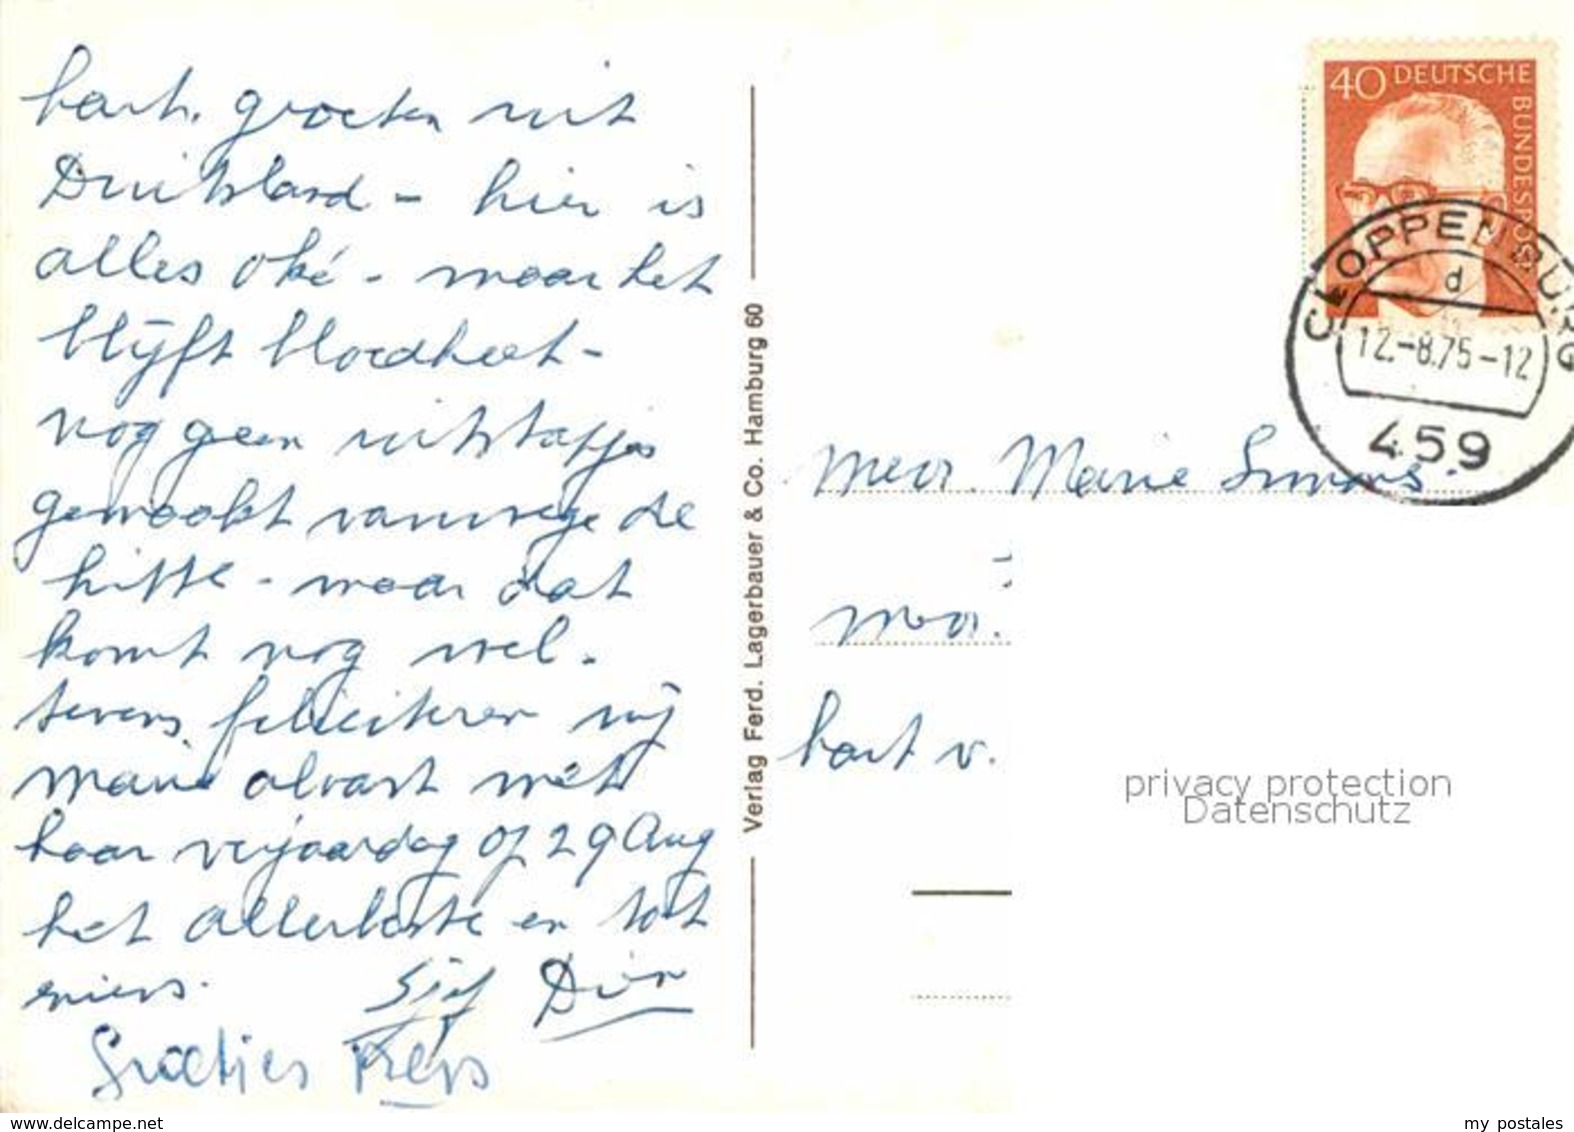 hart. groeten uit
Duitsland - hier is
alles oké - maar het
blijft bloedheet -
nog geen uitstapjes
gemaakt vanwege de
hitte - maar dat
komt nog wel.
tevens feliciteren wij
Marie alvast met
haar verjaardag op 29 Aug
het allerbeste en tot
ziens.
Groetjes Kees
Verlag Ferd. Lagerbauer & Co. Hamburg 60
40 DEUTSCHE BUNDESPOST
CLOPPENBURG
d
12.-8.75-12
459
Mevr. Marie Simons.
hart v.
privacy protection
Datenschutz
www.delcampe.net
my postales